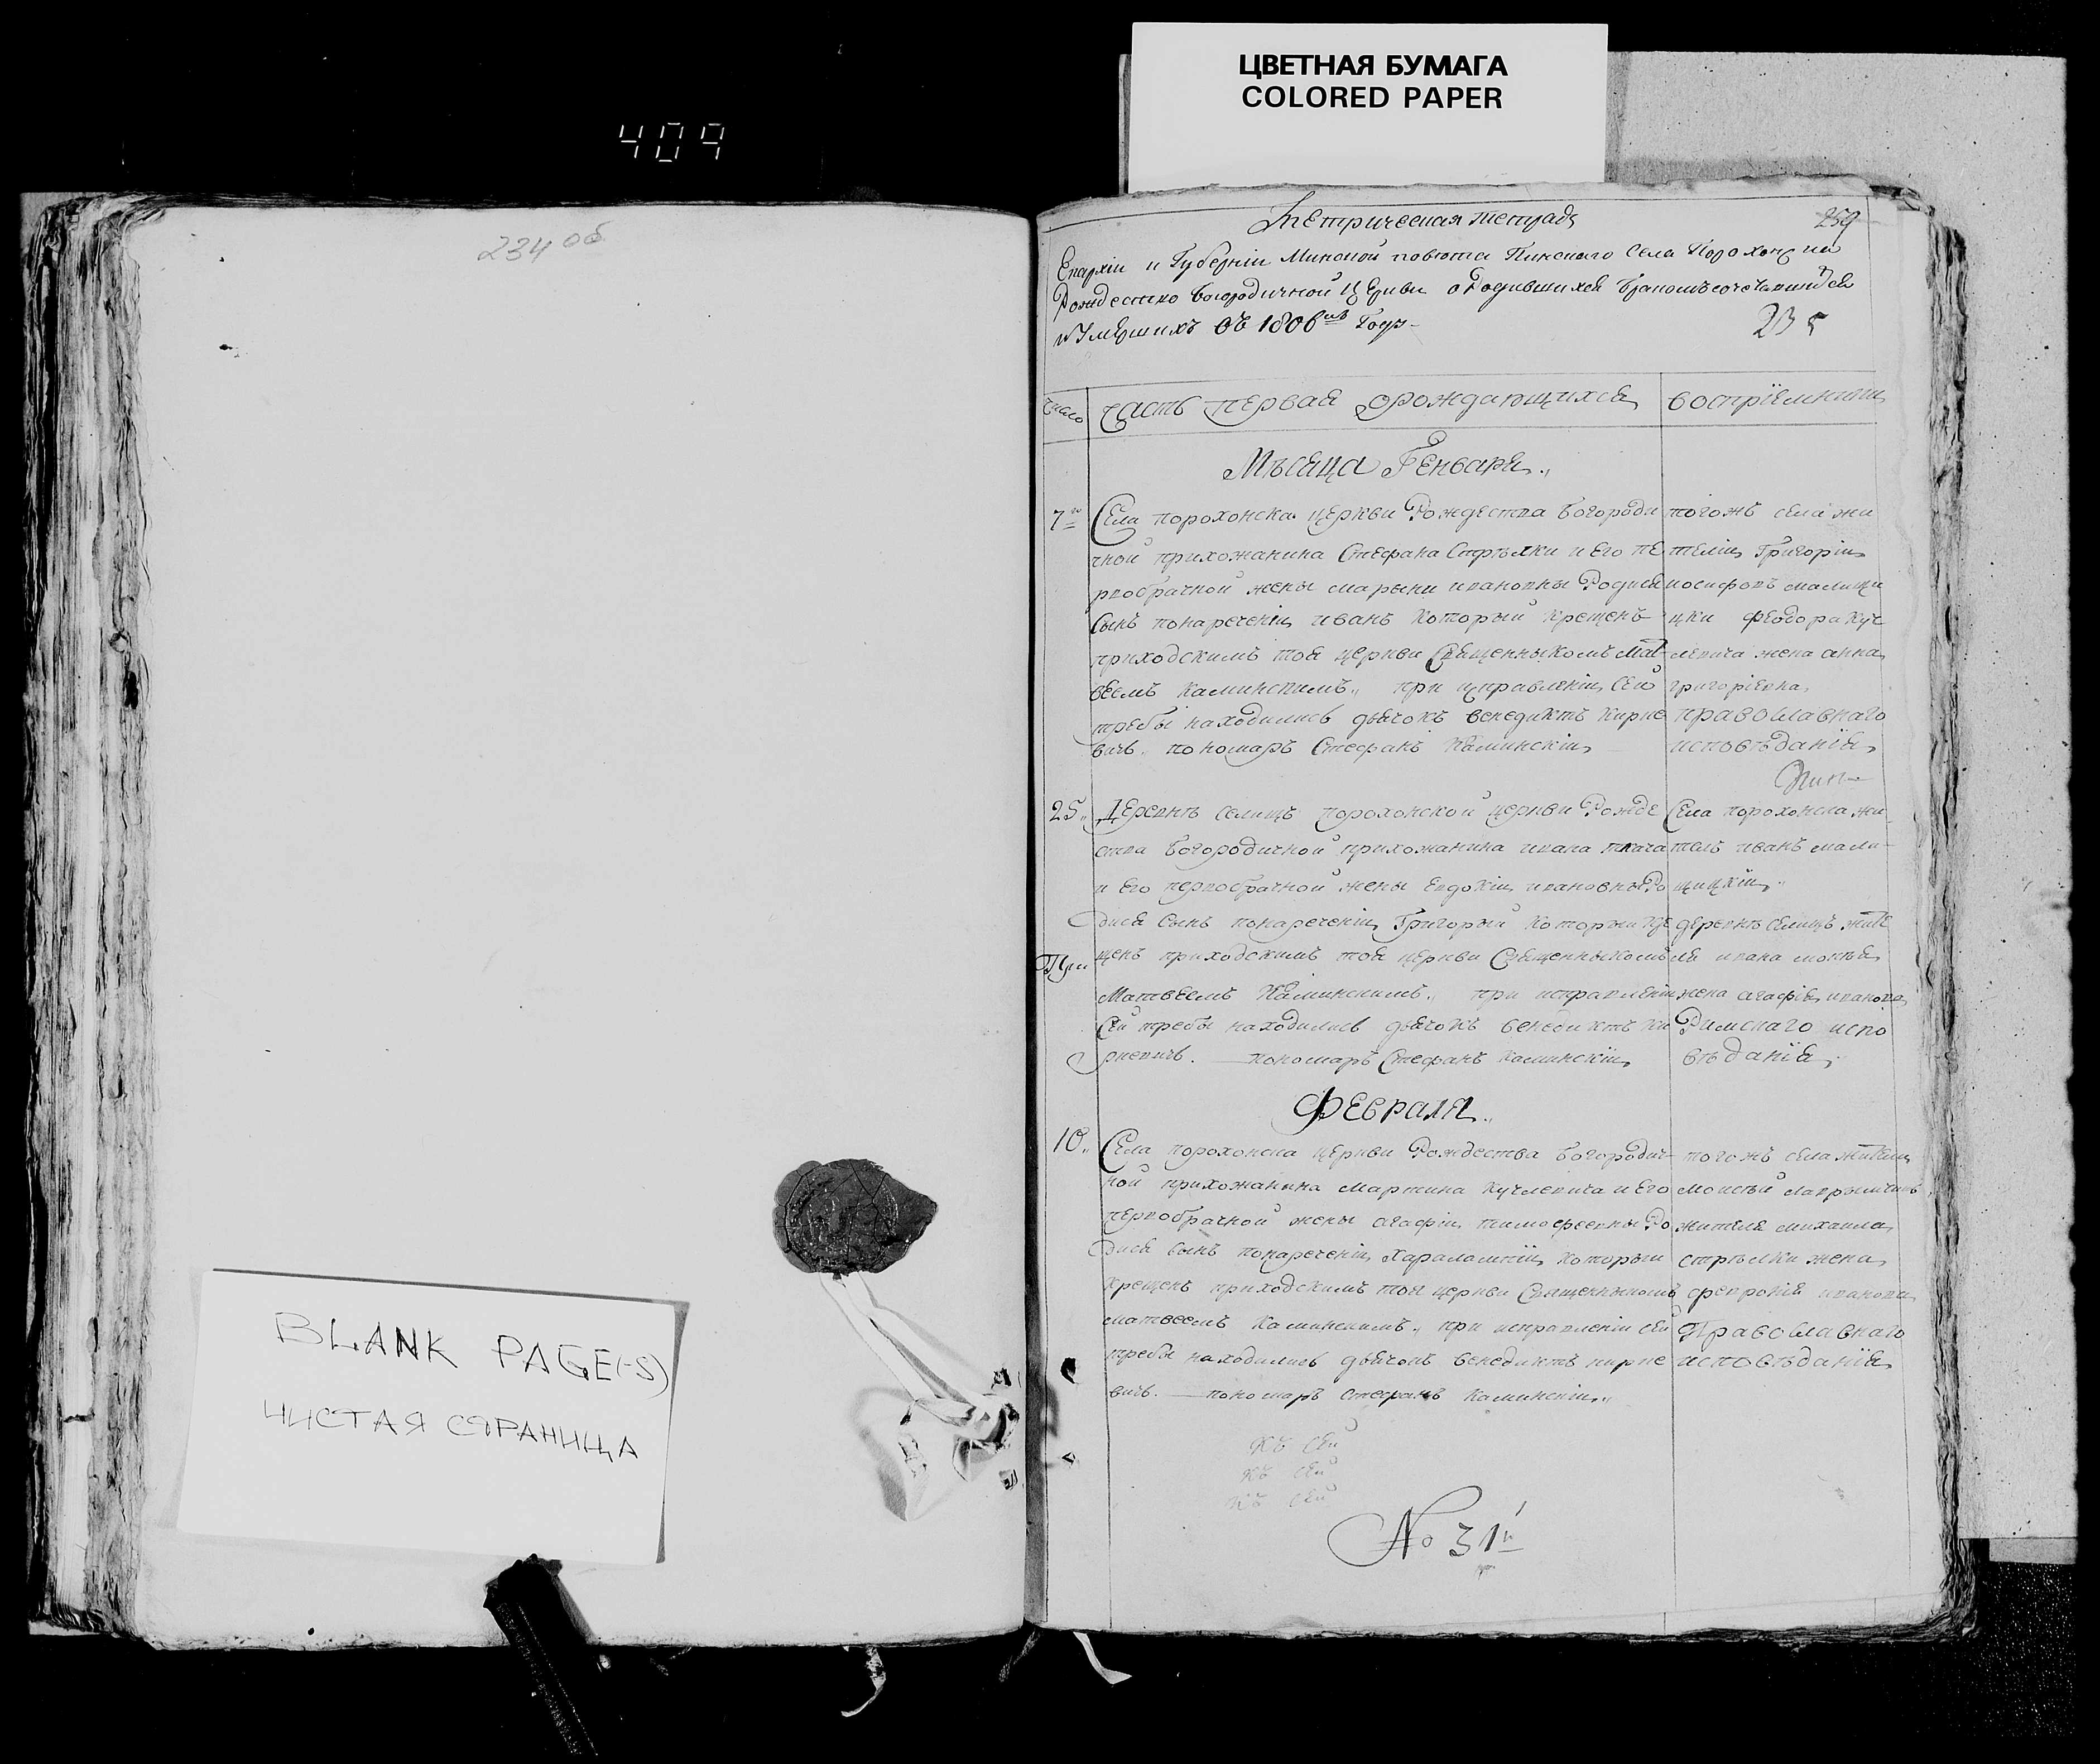 ЦВЕТНАЯ БУМАГА
COLORED PAPER
409
234 об
BLANK PAGE(-S)
ЧИСТАЯ СТРАНИЦА
Метрическая тетрадь
259
Епархіи и Губерніи Минской повѣта Пинскаго Села Порохонска
Рождество Богородичной Церкви о Родившихся Бракомъ сочетавшихся
и Умершихъ Въ 1806мъ Годѣ
235
число
Часть первая о рождающихся
воспріемники
Мѣсяца Генваря
7го
Села порохонска церкви Рождества Богороди
чной прихожанина Стефана Стрѣлки и Его пе
рвобрачной жены марыни ивановны Родися
Сынъ по нареченіи иванъ который крещенъ
приходскимъ тоя церкви Священныкомъ Мат
веемъ Каминскимъ при исправленіи сей
требы находились дьячокъ венедиктъ Кирке
вичъ пономаръ Стефанъ Каминскій
тогожъ села жи
тели Григорій
иосифовъ малищи
цки феодора Куч
левича жена анна
григоріевна
православнаго
исповѣданія
25
Деревнѣ селищъ порохонской церкви Рожде
ства Богородичной прихожанина ивана ткача
и Его первобрачной жены Евдокіи ивановны Ро
дися Сынъ по нареченіи Григорій Который кре
щенъ приходскимъ тоя церкви Священныкомъ
Матвеемъ Каминскимъ при исправленіи
Сей требы находились дьячокъ венедиктъ Ки
ркевичъ. пономаръ Стефанъ Каминскій
Села порохонска жи
тель иванъ мали
щицкій
деревнѣ Селищъ жите
ля ивана
жена агафія иванова
Римскаго испо
вѣданія
Февраля
10
Села порохонска церкви Рождества Богородич
ной прихожанина мартина Кучлевича и Его
первобрачной жены агафіи тимофеевны Ро
дися сынъ по нареченіи Харалампій который
крещенъ приходскимъ тоя церкви Священныкомъ
матвеемъ Каминскимъ при исправленіи сей
требы находились дьячокъ венедиктъ кирке
вичъ. пономаръ Стефанъ Каминскій
тогожъ села жители
моисей
жителя михаила
стрѣлки жена
февронія иванова
Православнаго
исповѣданія
къ сей
къ сей
къ сей
No 31й